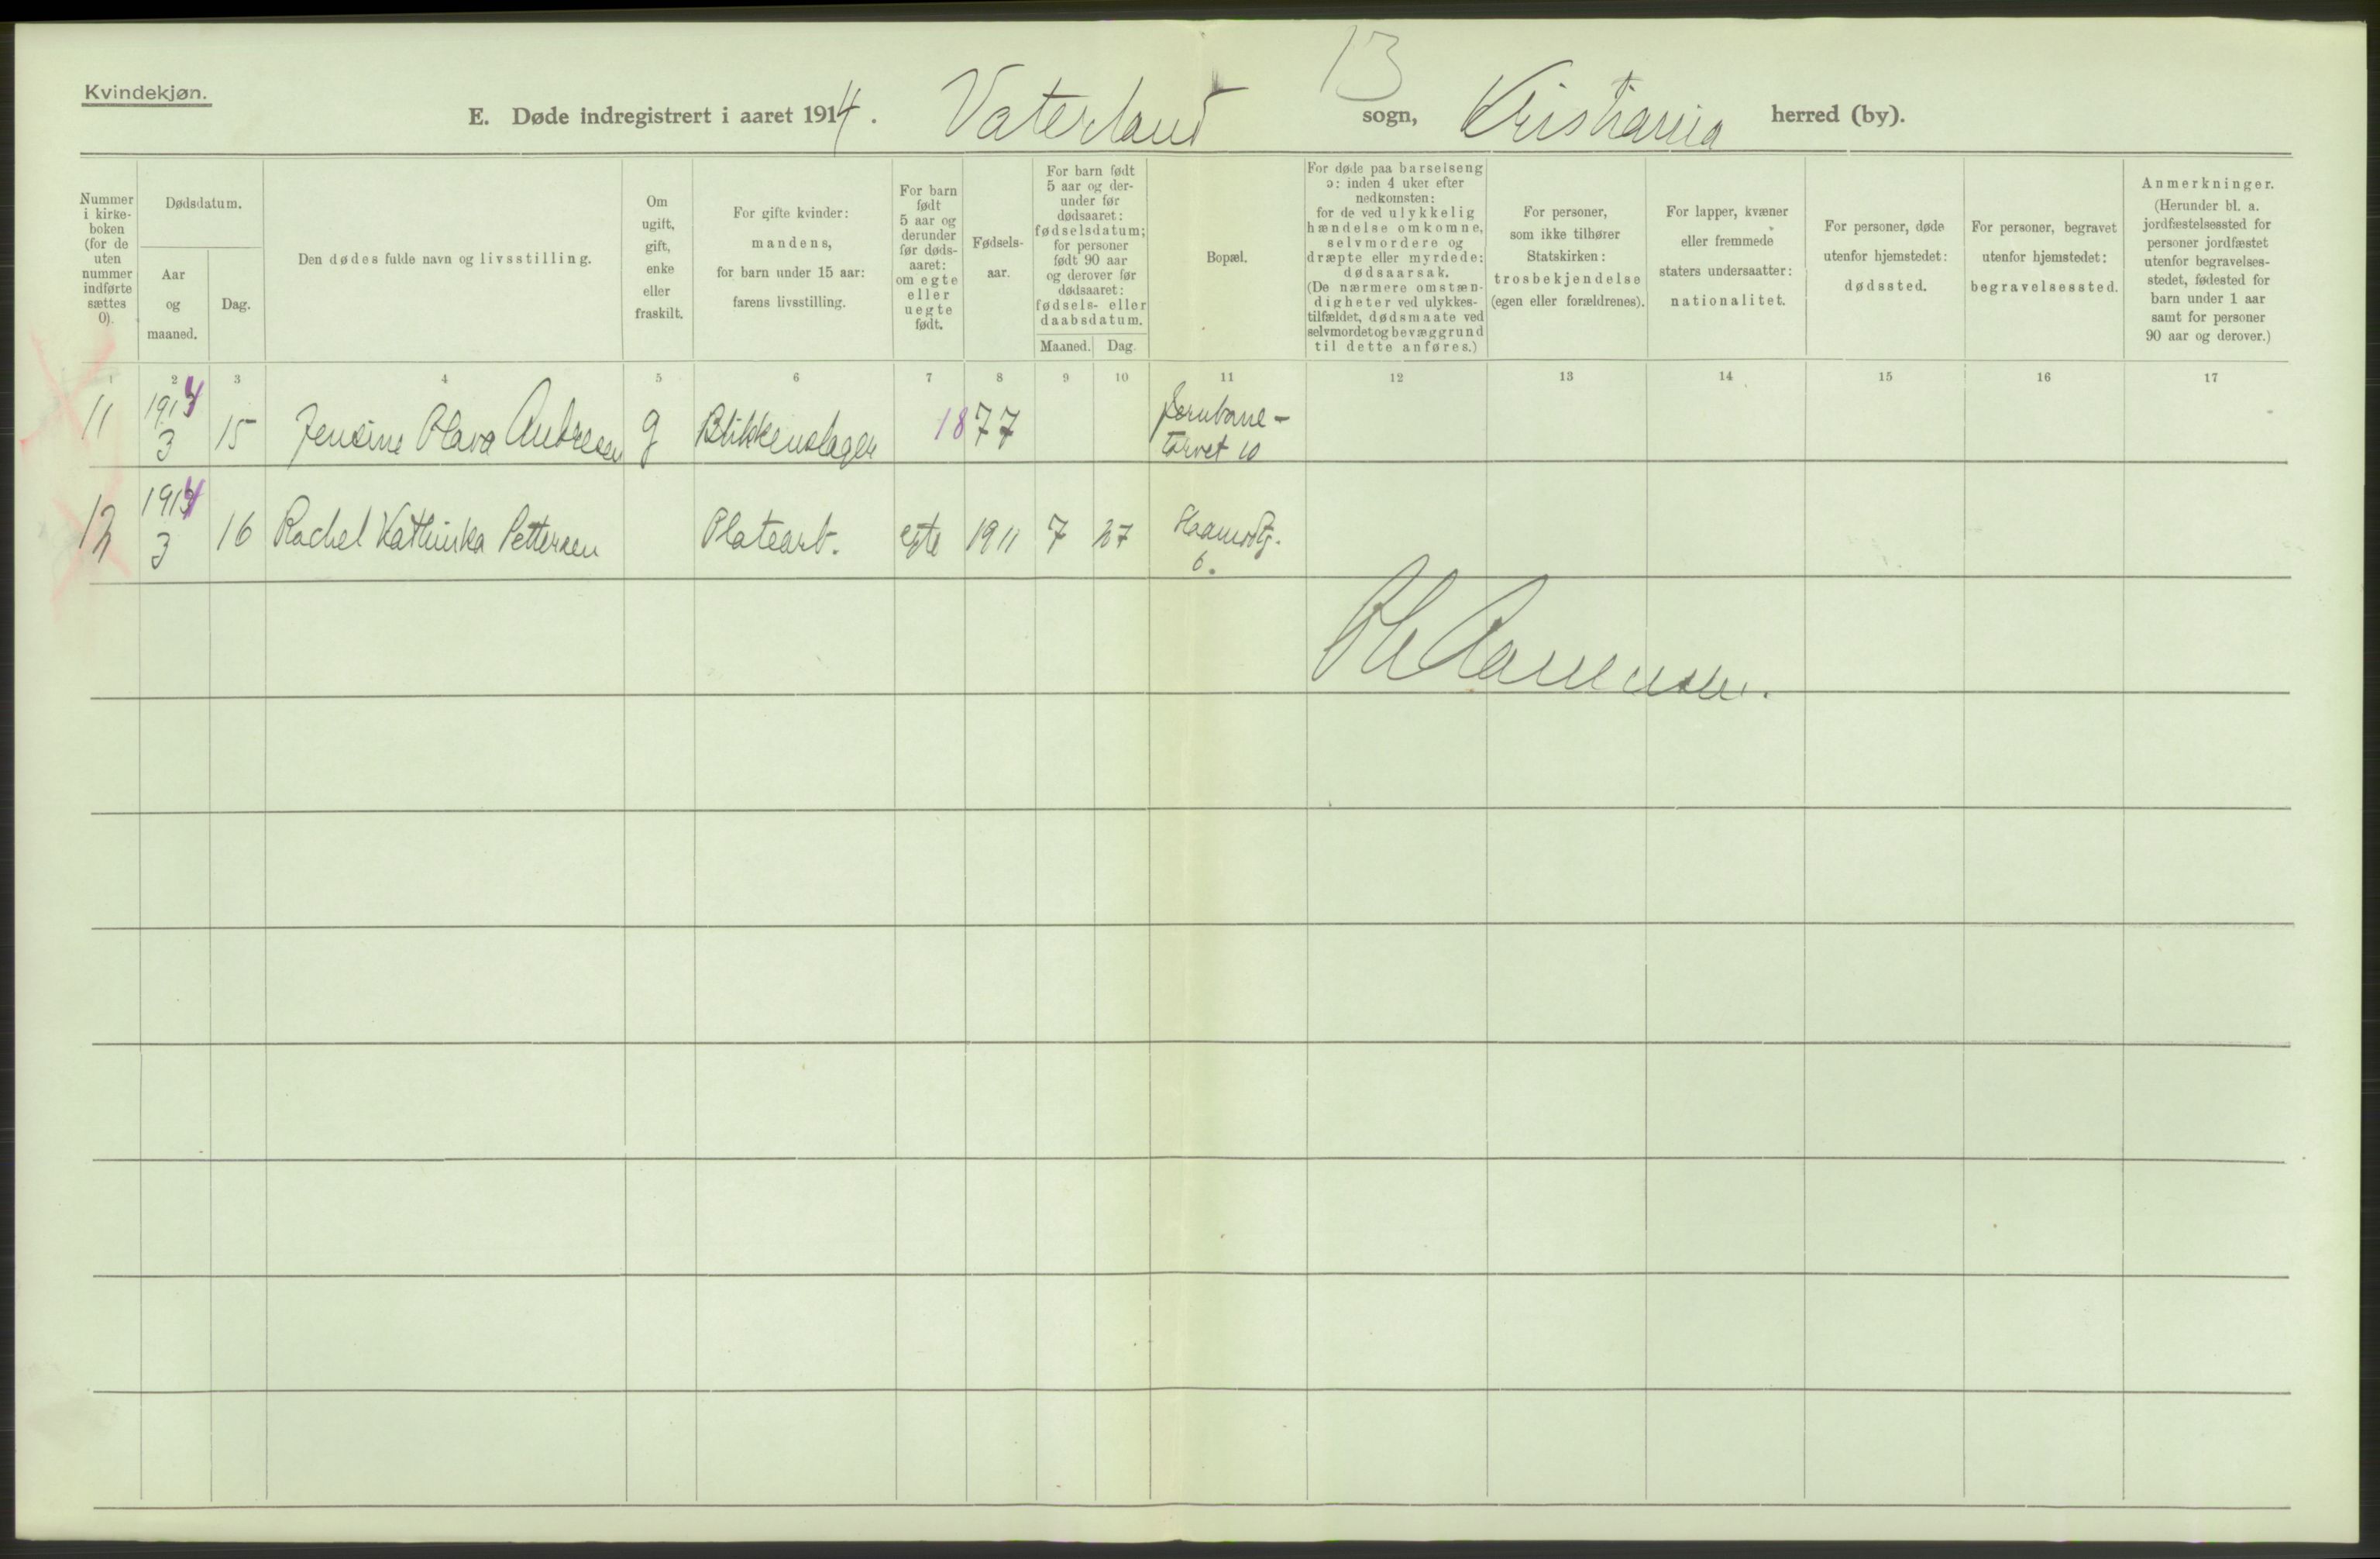 13
Kvindekjøn.
E. Døde indregistrert i aaret 1914. Vaterland sogn, Kristiania herred (by).
Nummer i kirke- boken (for de uten nummer indførte sættes 0).
Dødsdatum.
Aar og maaned.
Dag.
Den dødes fulde navn og livsstilling.
Om ugift, gift, enke eller fraskilt.
For gifte kvinder: mandens, for barn under 15 aar: farens livsstilling.
For barn født 5 aar og derunder før døds- aaret: om egte eller uegte født.
Fødsels- aar.
For barn født 5 aar og der- under før dødsaaret: fødselsdatum; for personer født 90 aar og derover før dødsaaret: fødsels- eller daabsdatum.
Maaned. Dag.
Bopæl.
For døde paa barselseng ɔ: inden 4 uker efter nedkomsten: for de ved ulykkelig hændelse omkomne, selvmordere og dræpte eller myrdede: dødsaarsak. (De nærmere omstæn- digheter ved ulykkes- tilfældet, dødsmaate ved selvmordet og bevæggrund til dette anføres.)
For personer, som ikke tilhører Statskirken: trosbekjendelse (egen eller forældrenes).
For lapper, kvæner eller fremmede staters undersaatter: nationalitet.
For personer, døde utenfor hjemstedet: dødssted.
For personer, begravet utenfor hjemstedet: begravelsessted.
Anmerkninger. (Herunder bl. a. jordfæstelsessted for personer jordfæstet utenfor begravelses- stedet, fødested for barn under 1 aar samt for personer 90 aar og derover.)
1 2 3 4 5 6 7 8 9 10 11 12 13 14 15 16 17
11 1914 3 15 Jensine Olava Andresen g Blikkenslager 1877 Jernbane- torvet 10
12 1914 3 16 Rachel Kathinka Pettersen Platearb. egte 1911 7 27 6.